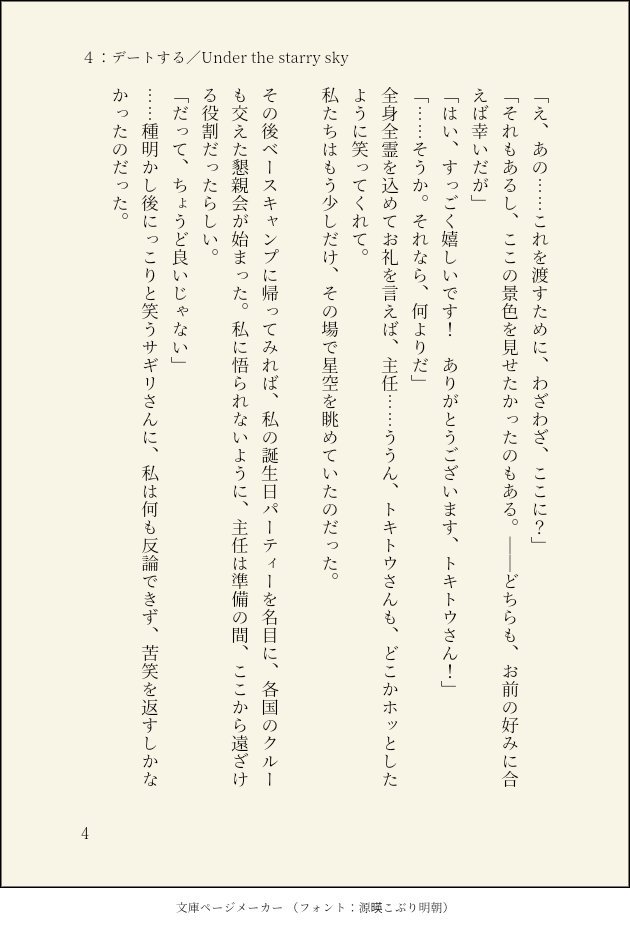 ４：デートする／Under the starry sky
「え、あの……これを渡すために、わざわざ、ここに？」
「それもあるし、ここの景色を見せたかったのもある。――どちらも、お前の好みに合
えば幸いだが」
「はい、すっごく嬉しいです！　ありがとうございます、トキトウさん！」
「……そうか。それなら、何よりだ」
全身全霊を込めてお礼を言えば、主任……ううん、トキトウさんも、どこかホッとした
ように笑ってくれて。
私たちはもう少しだけ、その場で星空を眺めていたのだった。
その後ベースキャンプに帰ってみれば、私の誕生日パーティーを名目に、各国のクルー
も交えた懇親会が始まった。私に悟られないように、主任は準備の間、ここから遠ざけ
る役割だったらしい。
「だって、ちょうど良いじゃない」
……種明かし後にっこりと笑うサギリさんに、私は何も反論できず、苦笑を返すしかな
かったのだった。
4
文庫ページメーカー （フォント：源暎こぶり明朝）